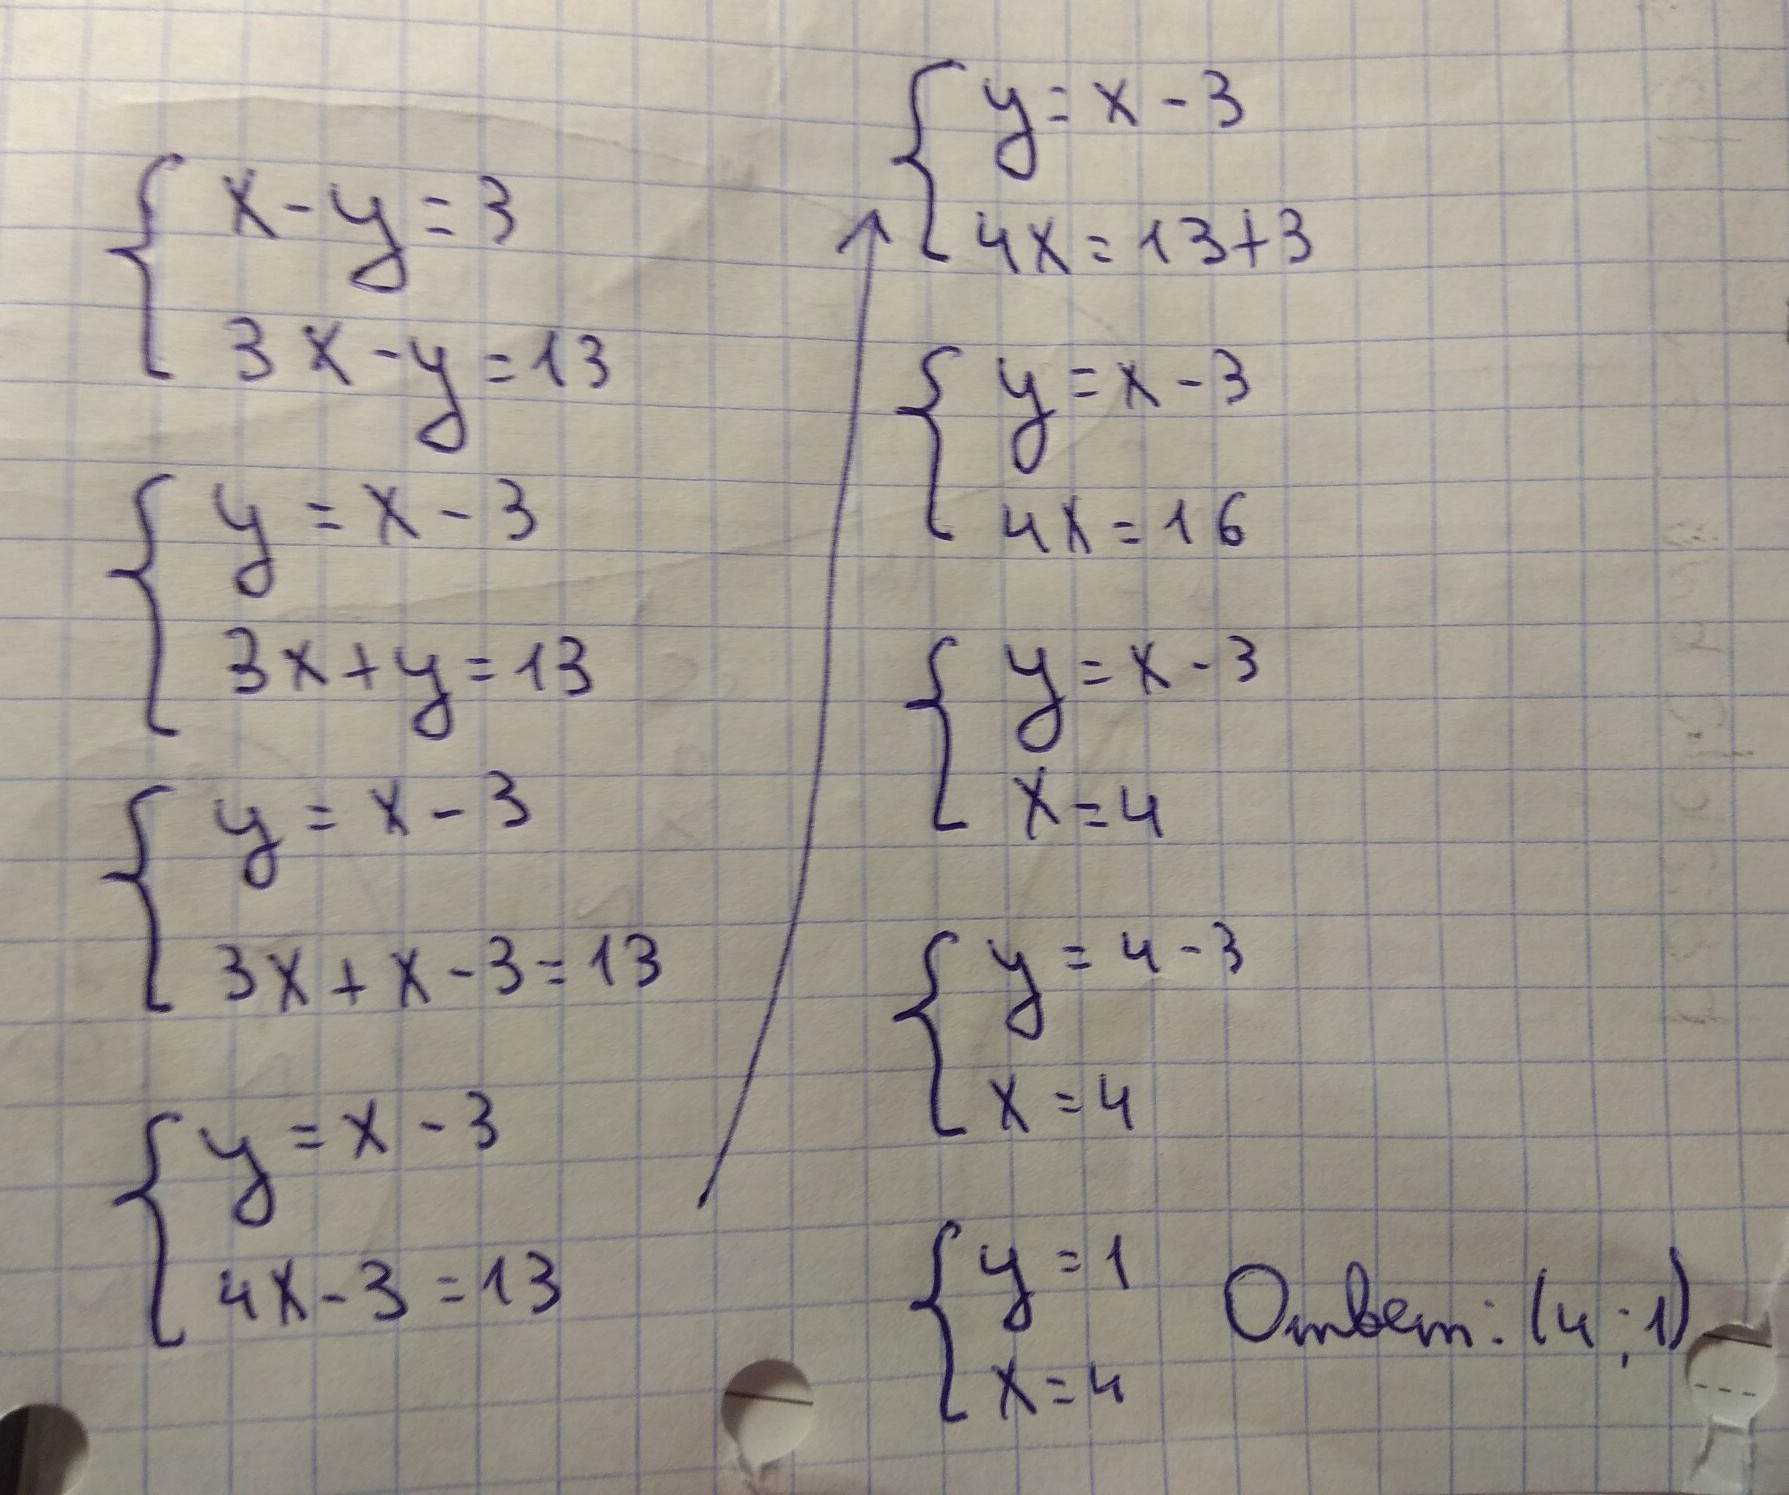 x-y=3
3x-y=13
y=x-3
3x+y=13
y=x-3
3x+x-3=13
y=x-3
4x-3=13
y=x-3
4x=13+3
y=x-3
4x=16
y=x-3
x=4
y=4-3
x=4
y=1
x=4
Ответ: (4;1)